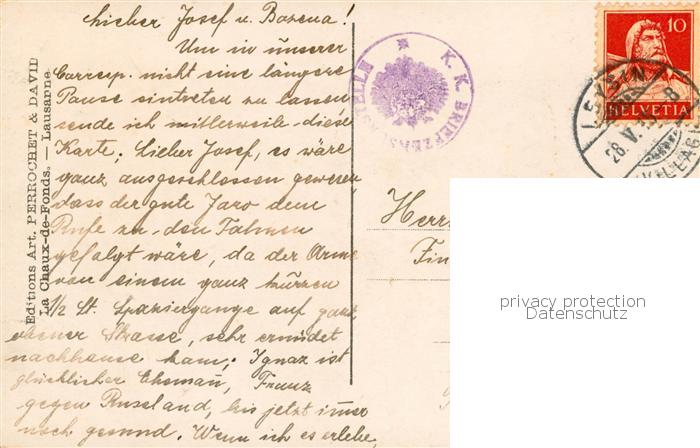 Lieber Josef u. Bozena!
Um in unserer
Corresp. nicht eine längere
Pause eintreten zu lassen
sende ich mitlerweile diese
Karte. Lieber Josef, es wäre
ganz ausgeschlossen gewesen
dass der gute Jaro dem
Rufe zu den Fahnen
gefolgt wäre, da der Arme
von einem ganz kurzen
1/2 St. Spaziergange auf ganz
ebener Strasse, sehr ermüdet
nachhause kam; Ignaz ist
glücklicher Ehemañ, Franz
gegen Russland, bis jetzt im̄er
noch gesund. Wenn ich es erlebe,
Editions Art. PERROCHET & DAVID
La Chaux-de-Fonds. — Lausanne
K. K. BRIEFZENSURSTELLE
10
HELVETIA
LEYSIN
28. V.
Herrn
Fin
privacy protection
Datenschutz